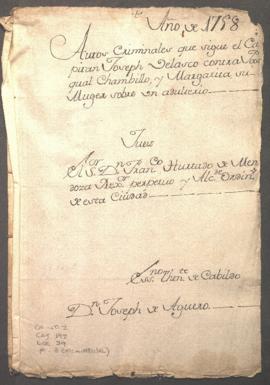 Año de 1758
Autos Criminales que sigue el Ca
pitan Joseph Velasco contra Pas
qual Chambillo, y Margarita su
Muger sobre un adulterio
Juez
El Sr. Dn. Franco. Hurtado de Men
doza Rexr. perpetuo y Alce. Ordino.
de esta Ciudad
Essno. Thente. de Cabildo
Dn. Joseph de Aguero.